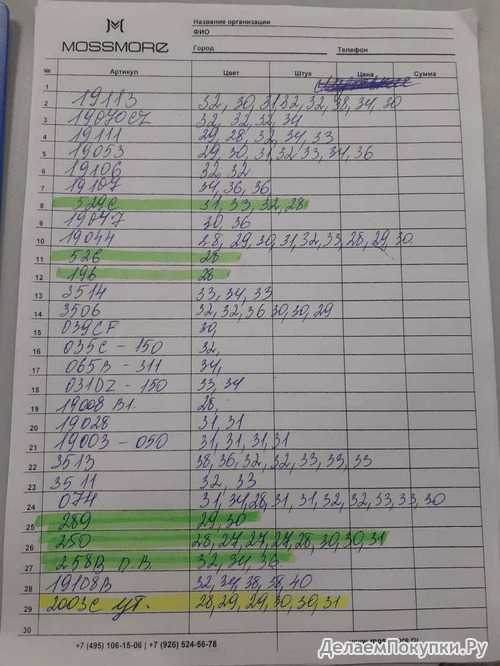 MOSSMORE
Название организации
ФИО
Город Телефон
№ Артикул Цвет Штук Цена Сумма
1
2 19113 32, 30, 31 32, 32, 38, 34, 30
3 19070CZ 32, 32, 32, 34
4 19111 29 28 32, 34, 33
5 19053 29 30, 31, 32 33, 34, 36
6 19106 32, 32
7 19107 34, 36, 36
8 529C 31, 33, 32, 28
9 19047 30, 36
10 19044 28, 29, 30, 31, 32, 33, 28, 29, 30.
11 526 28
12 196 28
13 3514 33, 34, 33
14 3506 32, 32, 36 30, 30, 29
15 039CF 30,
16 035C - 150 32,
17 065B - 311 34,
18 031DZ - 150 33, 34
19 19008 B1. 28,
20 19028 31, 31
21 19003 - 050 31, 31, 31, 31
22 3513 38, 36, 32, 32, 33, 33, 33
23 3511 32, 33
24 074 31, 34, 28, 31, 31, 32, 32, 33, 33, 30
25 289 29, 30
26 250 28, 27, 27, 27, 28, 30, 30, 31
27 258B п.в. 32, 34, 36
28 19108B 32, 34, 38, 38, 40
29 2003C ут. 28, 29, 29, 30, 30, 31
30
+7 (495) 106-15-06 | +7 (926) 524-56-78
ДелаемПокупки.Ру